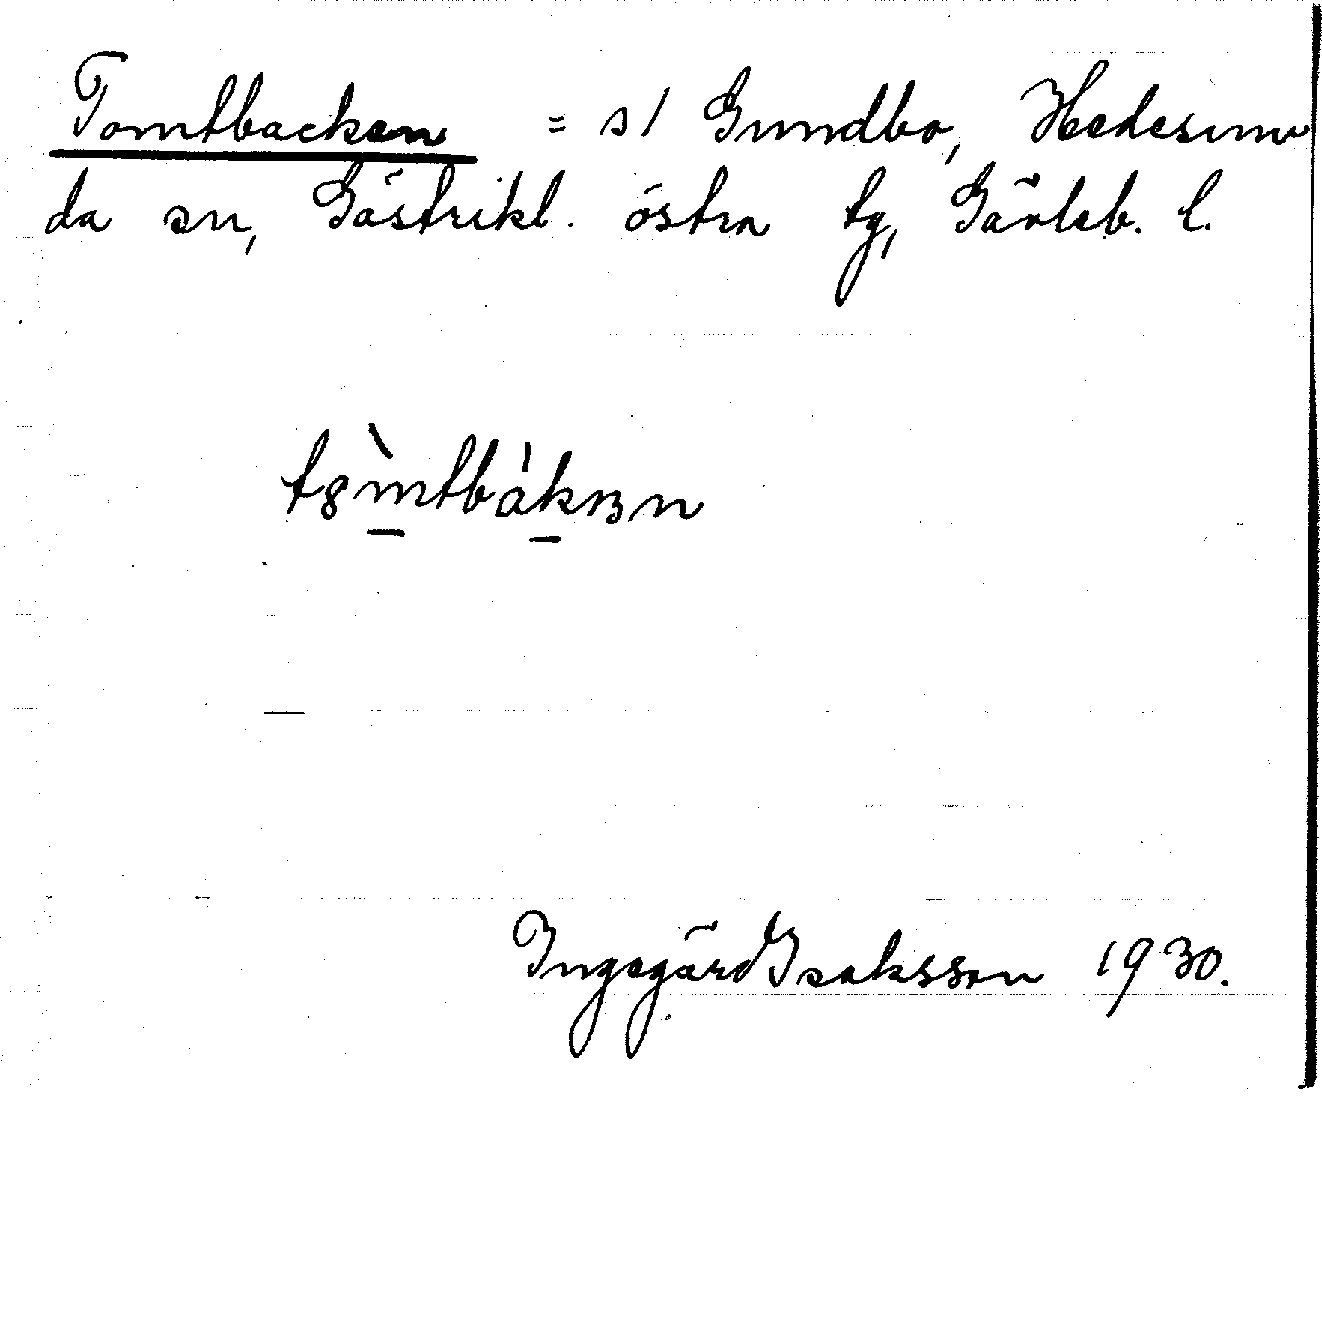 Tomtbacken = s/ Gundbo, Hedesun
da sn, Gästrikl. östra tg, Gävleb. l.
Ingegärd Isaksson 1930.